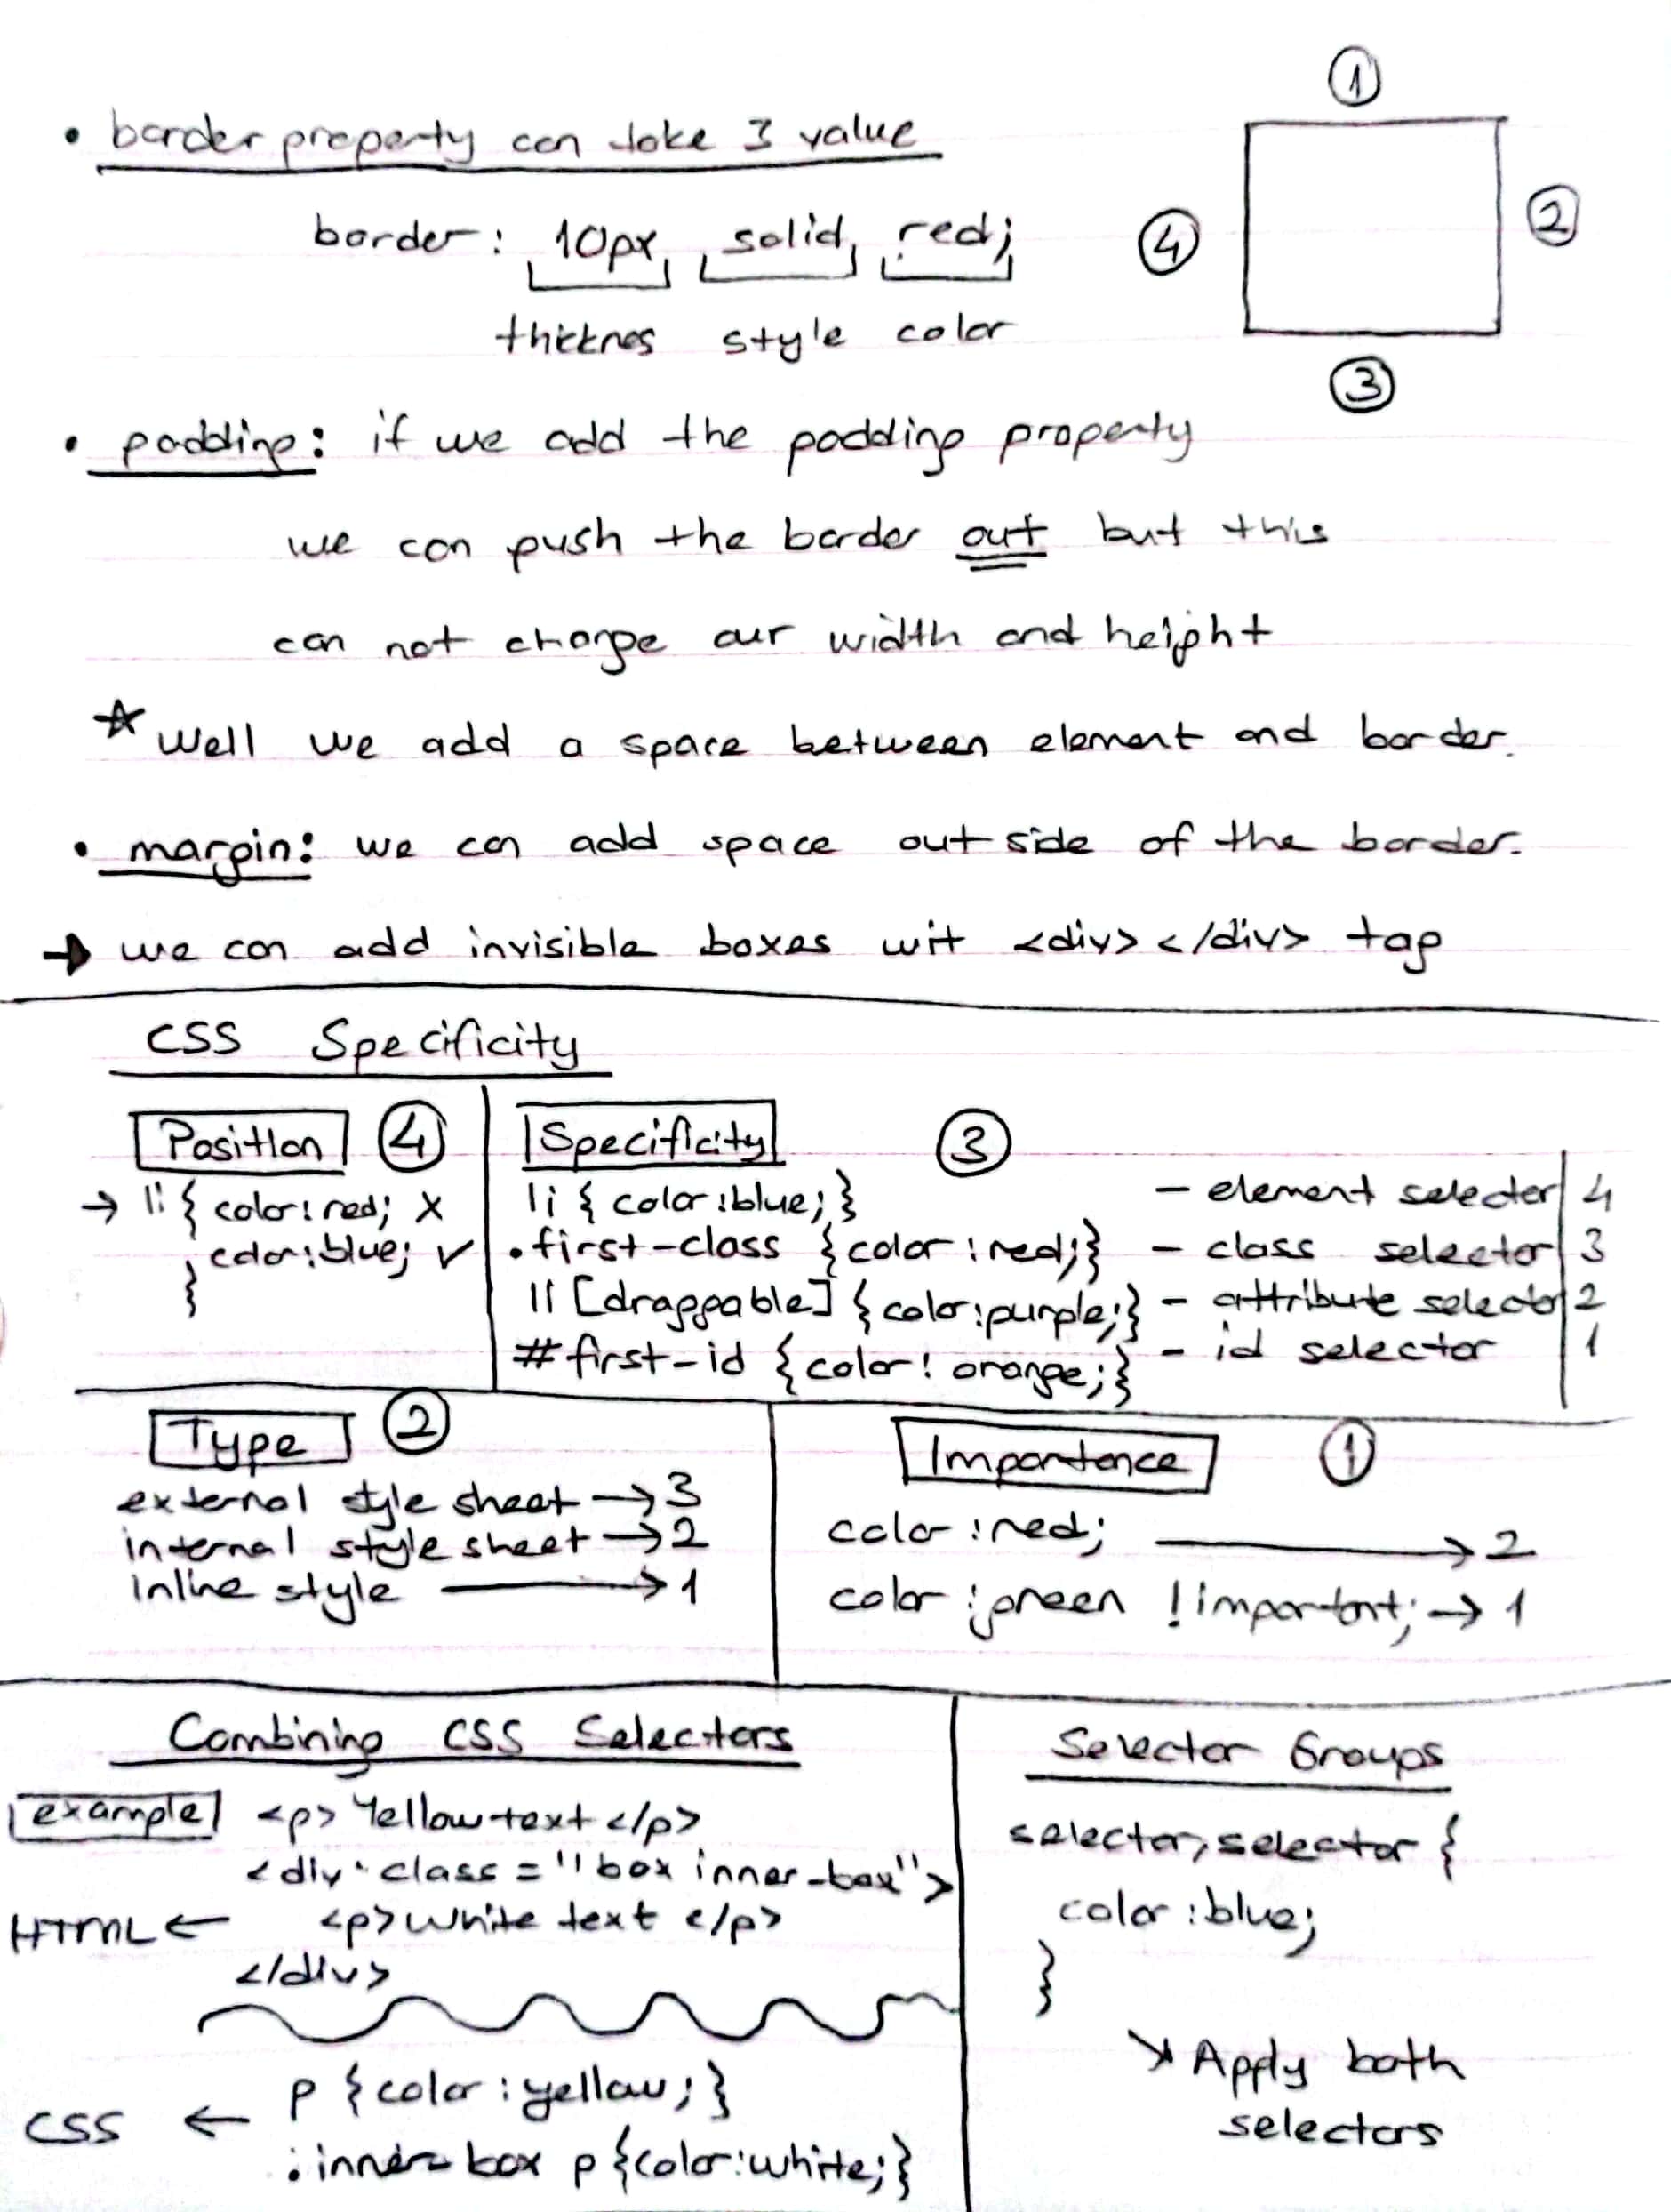 ①
• border property can take 3 value
④ ②
border: 10px solid red;
thicknes style color
③
• padding: if we add the padding property
we can push the border out but this
can not change our width and height
☆ Well we add a space between element and border.
• margin: we can add space outside of the border.
→ we can add invisible boxes wit <div></div> tag
CSS Specificity
Position ④
→ li { color: red; X
color: blue; ✓
}
Specificity ③
li { color: blue; } - element selector 4
.first-class { color: red; } - class selector 3
li [draggable] { color: purple; } - attribute selector 2
#first-id { color: orange; } - id selector 1
Type ②
external style sheet → 3
internal style sheet → 2
inline style → 1
Importance ①
color: red; → 2
color: green !important; → 1
Combining CSS Selectors
example <p> Yellow text </p>
<div class = "box inner-box">
HTML ← <p> White text </p>
</div>
CSS ← p { color: yellow; }
.inner-box p { color: white; }
Selector Groups
selector, selector {
color: blue;
}
↘ Apply both
selectors